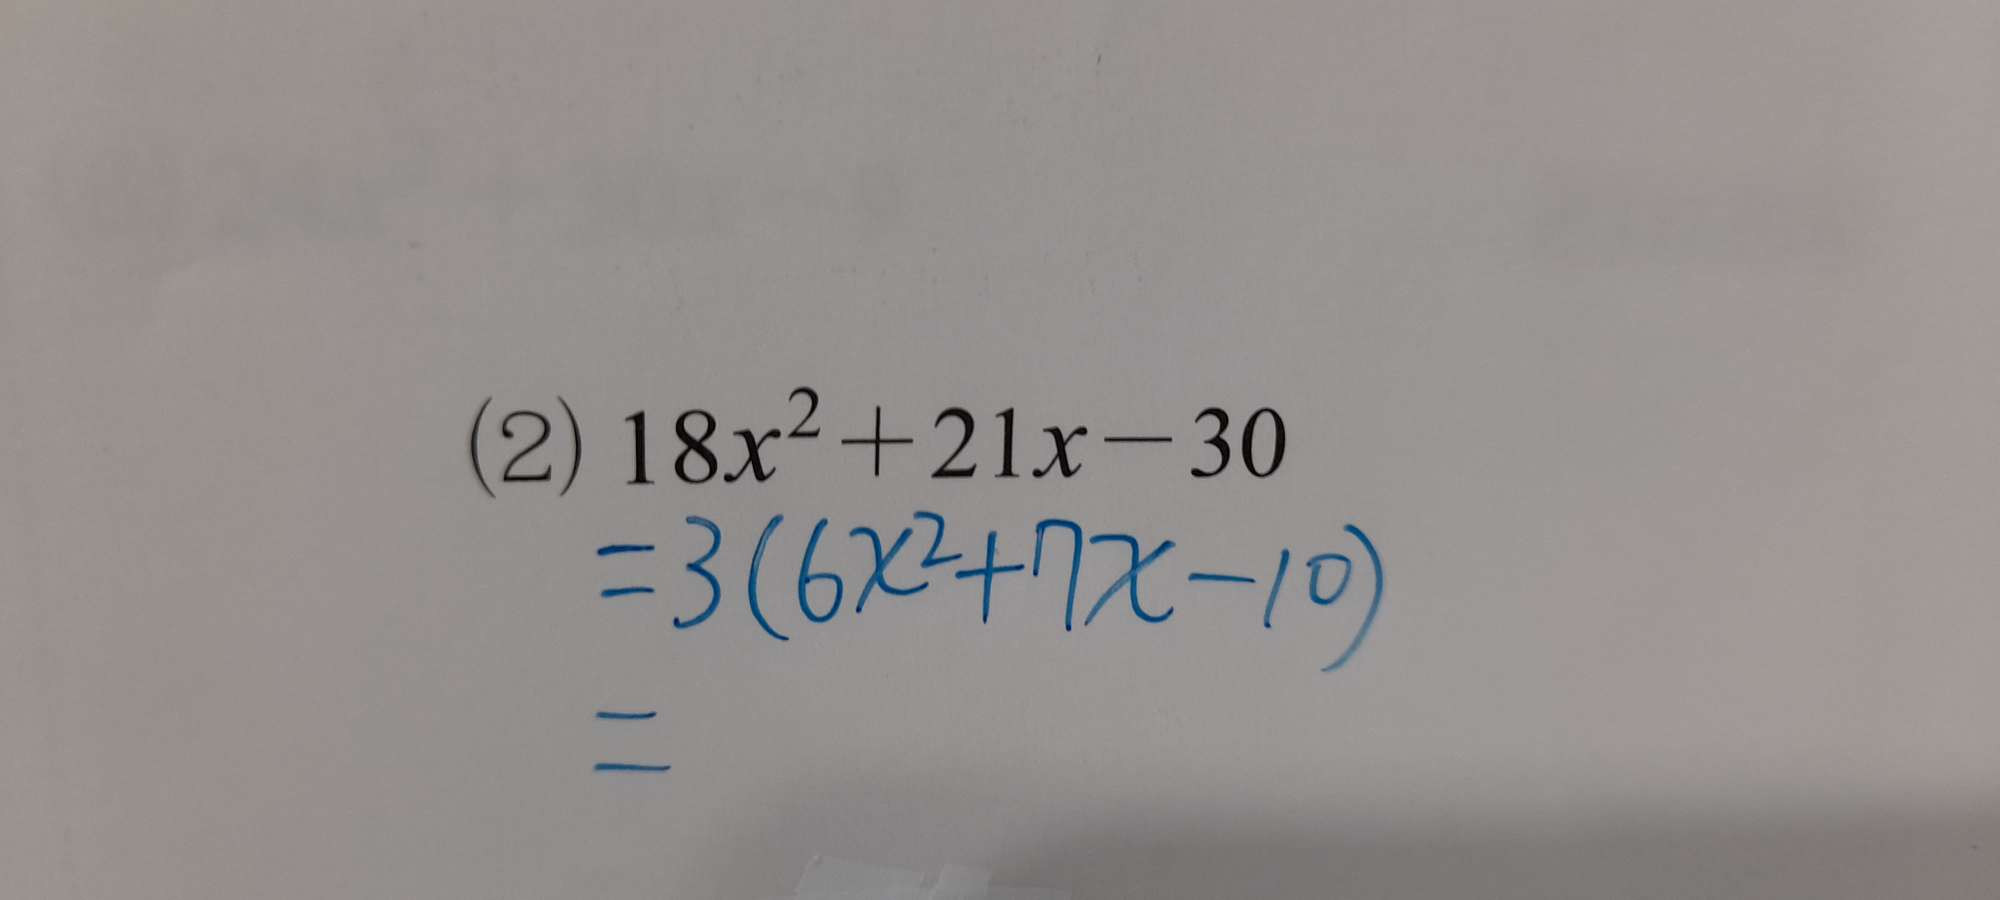 (2) 18x²+21x−30
=3(6x²+7x−10)
=